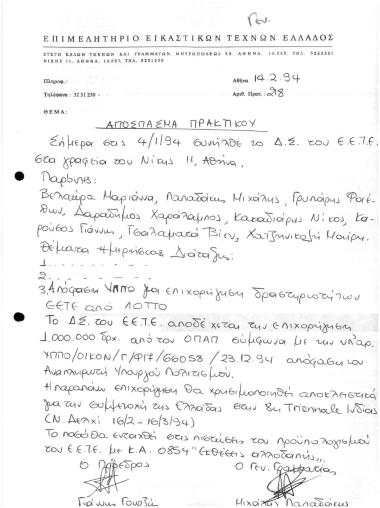 Γεν.
ΕΠΙΜΕΛΗΤΗΡΙΟ ΕΙΚΑΣΤΙΚΩΝ ΤΕΧΝΩΝ ΕΛΛΑΔΟΣ
ΣΤΕΓΗ ΚΑΛΩΝ ΤΕΧΝΩΝ ΚΑΙ ΓΡΑΜΜΑΤΩΝ, ΜΗΤΡΟΠΟΛΕΩΣ 38, ΑΘΗΝΑ, 10.563, ΤΗΛ.
ΝΙΚΗΣ 11, ΑΘΗΝΑ, 10.557, ΤΗΛ. 3231230
Πληροφ.:
Αθήνα 14.2.94
Τηλέφωνα: 32 31 230 -
Αριθ. Πρωτ.: 218
ΘΕΜΑ:
ΑΠΟΣΠΑΣΜΑ ΠΡΑΚΤΙΚΟΥ
Σήμερα στις 4/1/94 συνήλθε το Δ.Σ. του Ε.Ε.Τ.Ε.
στα γραφεία του Νίκης 11, Αθήνα.
Παρόντες:
Βελαώρα Μαριάννα, Παπαδάκης Μιχάλης, Γρυπάρης Φαέ-
θων, Δαραδήμος Χαράλαμπος, Κακαδιάρης Νίκος, Κα-
ρούσος Γιάννης, Τσαλαματά Βίκυ, Χατζηνικολή Μαίρη.
Θέματα Ημερήσιας Διάταξης:
1. . . . . . . . .
2. . . . . . . . .
3. Απόφαση ΥΠΠΟ για επιχορήγηση δραστηριοτήτων
ΕΕΤΕ από ΛΟΤΤΟ
Το ΔΣ. του Ε.Ε.Τ.Ε. αποδέχεται την επιχορήγηση
1.000.000 δρχ. από τον ΟΠΑΠ σύμφωνα με την υπ'αρ.
ΥΠΠΟ/ΟΙΚΟΝ/Γ/Φ17/66058 / 23.12.94 απόφαση του
Αναπληρωτή Υπουργού Πολιτισμού.
Η παραπάνω επιχορήγηση θα χρησιμοποιηθεί αποκλειστικά
για την συμμετοχή της Ελλάδας στην 8η Triennale Ινδίας
(Ν. Δελχί 16/2 - 16/3/94)
Το ποσό θα ενταχθεί στις πιστώσεις του προϋπολογισμού
του Ε.Ε.Τ.Ε. με Κ.Α. 0854 "Εκθέσεις αλλοδαπής".
Ο Πρόεδρος
Ο Γεν. Γραμματέας
Γιάννης
Μιχάλης Παπαδάκης